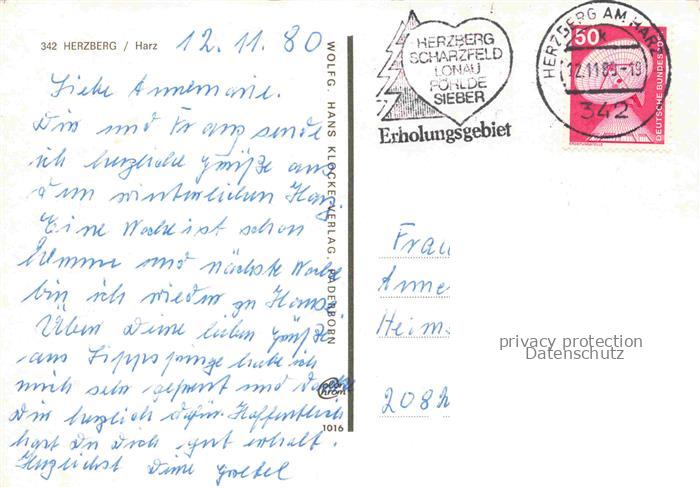 342 HERZBERG / Harz 12.11.80
Liebe Annemarie.
Dir und Franz sende
ich herzliche Grüße aus
dem winterlichen Harz.
Eine Woche ist schon
herum und nächste Woche
bin ich wieder zu Hause.
Über Deine lieben Grüße
aus Lippspringe habe ich
mich sehr gefreut und danke
Dir herzlich dafür. Hoffentlich
hast Du Dich gut erholt.
Herzlichst Deine
WOLFG. HANS KLOCKE VERLAG, PADERBORN
1016
HERZBERG
SCHARZFELD
LONAU
POHLDE
SIEBER
Erholungsgebiet
HERZBERG AM HARZ
12.11.80-19
342
50
DEUTSCHE BUNDESPOST
Frau
Anne
Heims
208
privacy protection
Datenschutz